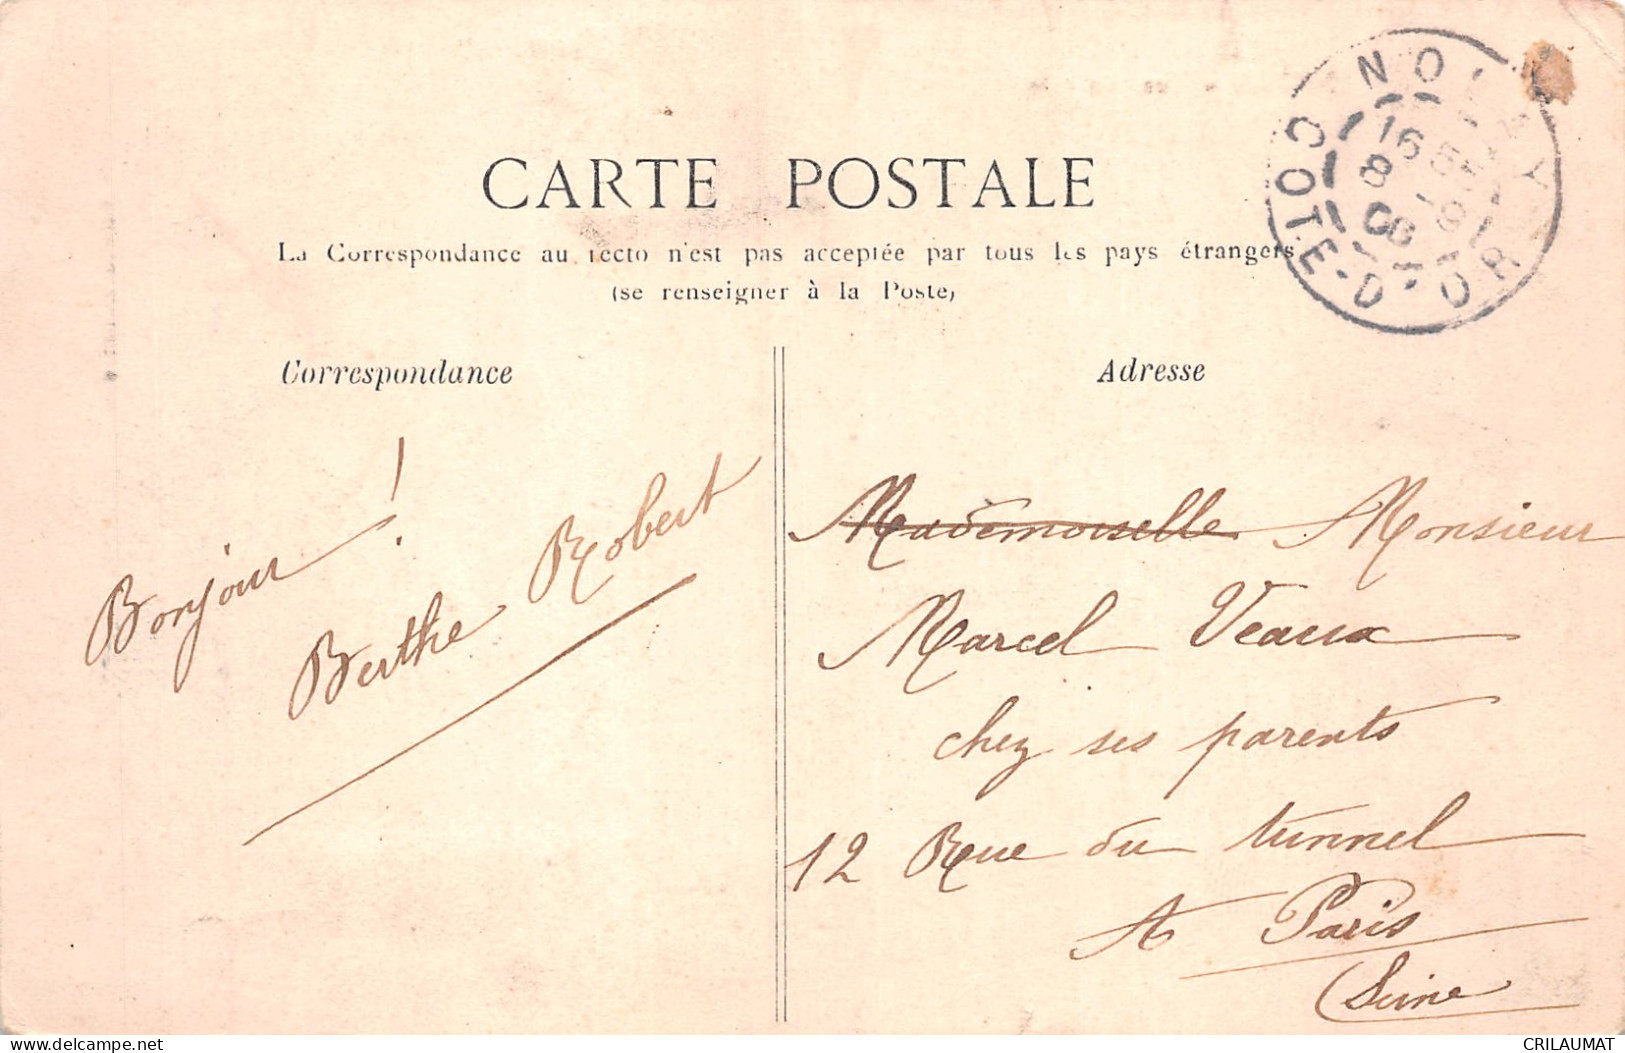 CARTE POSTALE
La Correspondance au recto n'est pas acceptée par tous les pays étrangers.
(se renseigner à la Poste)
Correspondance
Adresse
COTE-D'OR
16
8
Bonjour !
Berthe Robert
Mademoiselle Monsieur
Marcel Veaux
chez ses parents
12 Rue du tunnel
A Paris
(Seine
delcampe.net
CRILAUMAT